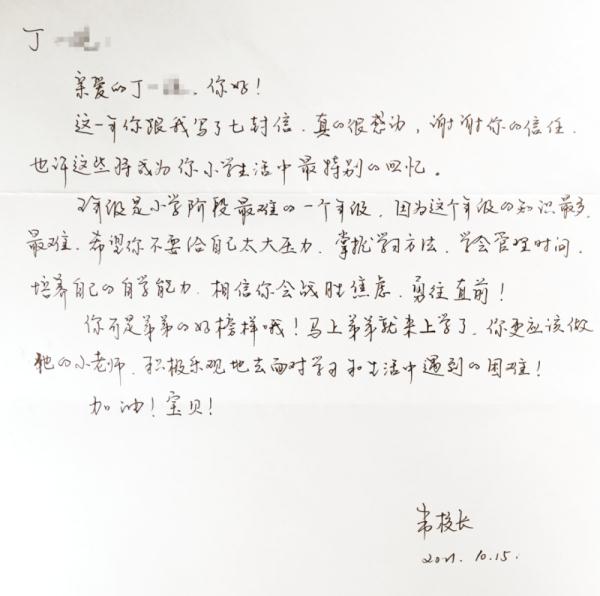 丁一
亲爱的丁一 你好！
这一年你跟我写了七封信，真的很感动，谢谢你的信任，
也许这些将成为你小学生活中最特别的回忆。
年级是小学阶段最难的一个年级，因为这个年级的知识最多，
最难。希望你不要给自己太大压力，掌握学习方法，学会管理时间，
培养自己的自学能力，相信你会战胜焦虑，勇往直前！
你可是弟弟的好榜样哦！马上弟弟就来上学了，你更应该做
他的小老师，积极乐观地去面对学习和生活中遇到的困难！
加油！宝贝！
韦校长
2021.10.15.